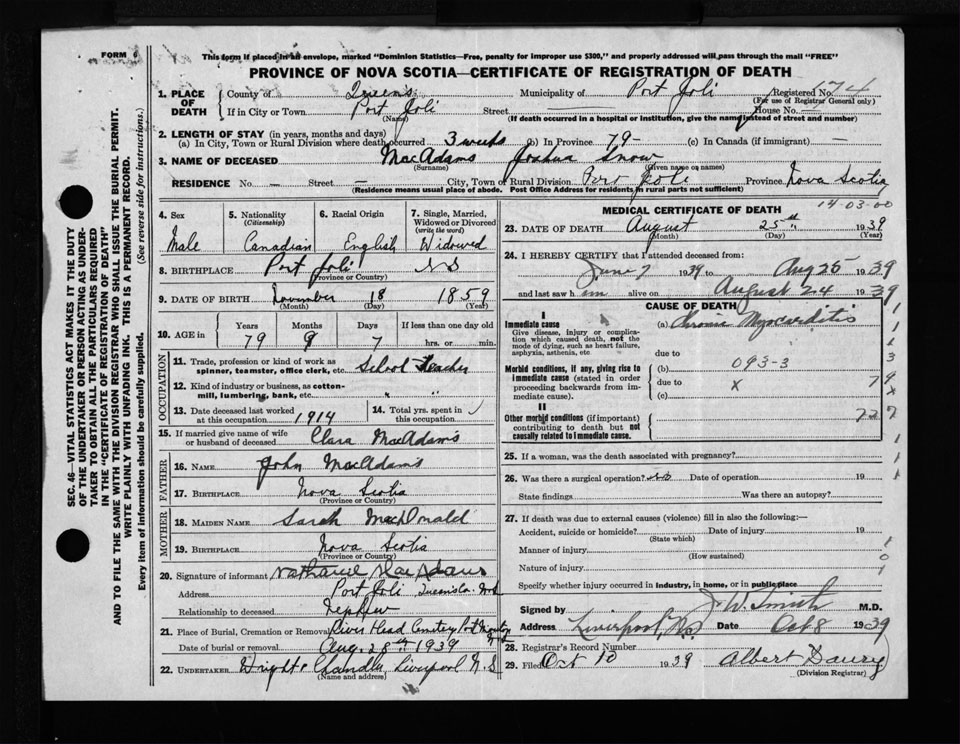 FORM 6
This form if placed in an envelope, marked "Dominion Statistics—Free, penalty for improper use $300," and properly addressed will pass through the mail "FREE"
PROVINCE OF NOVA SCOTIA—CERTIFICATE OF REGISTRATION OF DEATH
SEC. 46—VITAL STATISTICS ACT MAKES IT THE DUTY
OF THE UNDERTAKER OR PERSON ACTING AS UNDER-
TAKER TO OBTAIN ALL THE PARTICULARS REQUIRED
IN THE "CERTIFICATE OF REGISTRATION OF DEATH"
AND TO FILE THE SAME WITH THE DIVISION REGISTRAR WHO SHALL ISSUE THE BURIAL PERMIT.
WRITE PLAINLY WITH UNFADING INK. THIS IS A PERMANENT RECORD.
Every item of information should be carefully supplied. (See reverse side for instructions.)
1. PLACE OF DEATH
County of Queens Municipality of Port Joli Registered No. 174
(For use of Registrar General only)
If in City or Town Port Joli Street — House No. —
(Name) (If death occurred in a hospital or institution, give the name instead of street and number)
2. LENGTH OF STAY (in years, months and days)
(a) In City, Town or Rural Division where death occurred 3 weeks (b) In Province 79 - (c) In Canada (if immigrant) —
3. NAME OF DECEASED MacAdams Joshua Snow
(Surname) (Given name or names)
RESIDENCE No. — Street — City, Town or Rural Division Port Joli Province Nova Scotia
(Residence means usual place of abode. Post Office Address for residents in rural parts not sufficient)
14-03-00
4. Sex Male
5. Nationality (Citizenship) Canadian
6. Racial Origin English
7. Single, Married, Widowed or Divorced (write the word) Widowed
8. BIRTHPLACE Port Joli NS
(Province or Country)
9. DATE OF BIRTH November 18 1859
(Month) (Day) (Year)
10. AGE in Years Months Days If less than one day old
79 9 7 hrs. or min.
OCCUPATION
11. Trade, profession or kind of work as spinner, teamster, office clerk, etc. School Teacher
12. Kind of industry or business, as cotton-mill, lumbering, bank, etc. " "
13. Date deceased last worked at this occupation 1914
14. Total yrs. spent in this occupation
15. If married give name of wife or husband of deceased Clara MacAdams
FATHER
16. NAME John MacAdams
17. BIRTHPLACE Nova Scotia
(Province or Country)
MOTHER
18. MAIDEN NAME Sarah MacDonald
19. BIRTHPLACE Nova Scotia
(Province or Country)
20. Signature of informant Nathaniel MacAdams
Address Port Joli Queens Co. N.S.
Relationship to deceased Nephew
21. Place of Burial, Cremation or Removal River Head Cemetery Port
Date of burial or removal Aug. 28th 1939
22. UNDERTAKER Wright & Chandler Liverpool N.S
(Name and address)
MEDICAL CERTIFICATE OF DEATH
23. DATE OF DEATH August 25th 1939
(Month) (Day) (Year)
24. I HEREBY CERTIFY that I attended deceased from:
June 7 1939 to Aug 25 1939
and last saw him alive on August 24 1939
CAUSE OF DEATH
I
Immediate cause
Give disease, injury or complication which caused death, not the mode of dying, such as heart failure, asphyxia, asthenia, etc
(a) Chronic Myocarditis
due to
Morbid conditions, if any, giving rise to immediate cause (stated in order proceeding backwards from immediate cause).
(b) 093-3
due to X
(c)
II
Other morbid conditions (if important) contributing to death but not causally related to immediate cause.
25. If a woman, was the death associated with pregnancy?
26. Was there a surgical operation? No Date of operation 19
State findings Was there an autopsy?
27. If death was due to external causes (violence) fill in also the following:—
Accident, suicide or homicide? Date of injury 19
(State which)
Manner of injury
(How sustained)
Nature of injury
Specify whether injury occurred in industry, in home, or in public place
Signed by J. W. Smith M.D.
Address Liverpool, NS Date Oct 8 1939
28. Registrar's Record Number
29. Filed Oct 10 1939 Albert Daury
(Division Registrar)